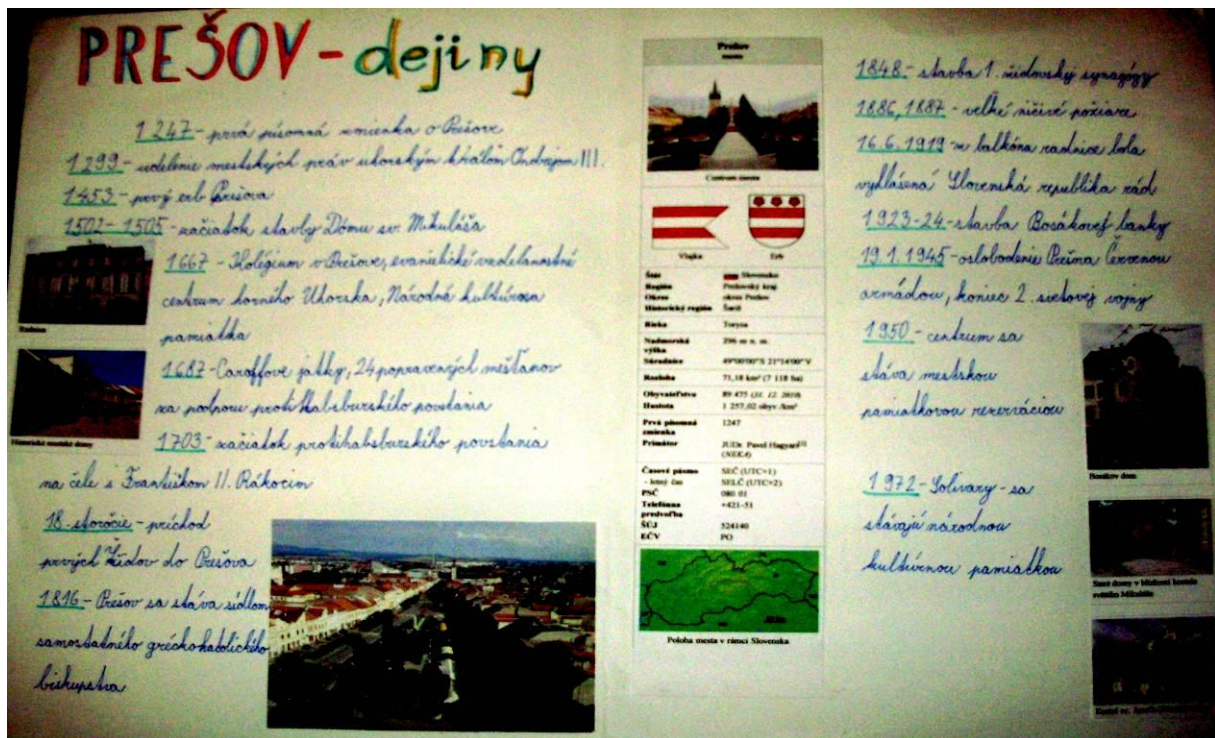 PREŠOV - dejiny
1247 - prvá písomná zmienka o Prešove
1299 - udelenie mestských práv uhorským kráľom Ondrejom III.
1453 - prvý erb Prešova
1502 - 1505 - začiatok stavby Dómu sv. Mikuláša
1667 - Kolégium v Prešove, evanielické vzdelanostné
centrum horného Uhorska, Národná kultúrna
pamiatka
1687 - Caraffove jatky, 24 popravených mešťanov
za podporu protihabsburského povstania
1703 - začiatok protihabsburského povstania
na čele s Františkom II. Rákocim
18. storočie - príchod
prvých Židov do Prešova
1816 - Prešov sa stáva sídlom
samostatného gréckokatolíckeho
biskupstva
Radnica
Historické mestské domy
Prešov
mesto
Centrum mesta
Vlajka Erb
Štát Slovensko
Región Prešovský kraj
Okres okres Prešov
Historický región Šariš
Rieka Torysa
Nadmorská výška 296 m n. m.
Súradnice 49°00'00"S 21°14'00"V
Rozloha 71,18 km² (7 118 ha)
Obyvateľstvo 89 475 (31. 12. 2010)
Hustota 1 257,02 obyv./km²
Prvá písomná zmienka 1247
Primátor JUDr. Pavel Hagyari[1]
(NEKA)
Časové pásmo SEČ (UTC+1)
- letný čas SELČ (UTC+2)
PSČ 080 01
Telefónna predvoľba +421-51
ŠÚJ 524140
EČV PO
Poloha mesta v rámci Slovenska
1848 - stavba 1. židovskej synagógy
1886, 1887 - veľké ničivé požiare
16.6.1919 - z balkóna radnice bola
vyhlásená Slovenská republika rád
1923-24 - stavba Bosákovej banky
19.1.1945 - oslobodenie Prešova Červenou
armádou, koniec 2. svetovej vojny
1950 - centrum sa
stáva mestskou
pamiatkovou rezerváciou
1972 - Solivary - sa
stávajú národnou
kultúrnou pamiatkou
Bosákov dom
Staré domy v blízkosti kostola
svätého Mikuláša